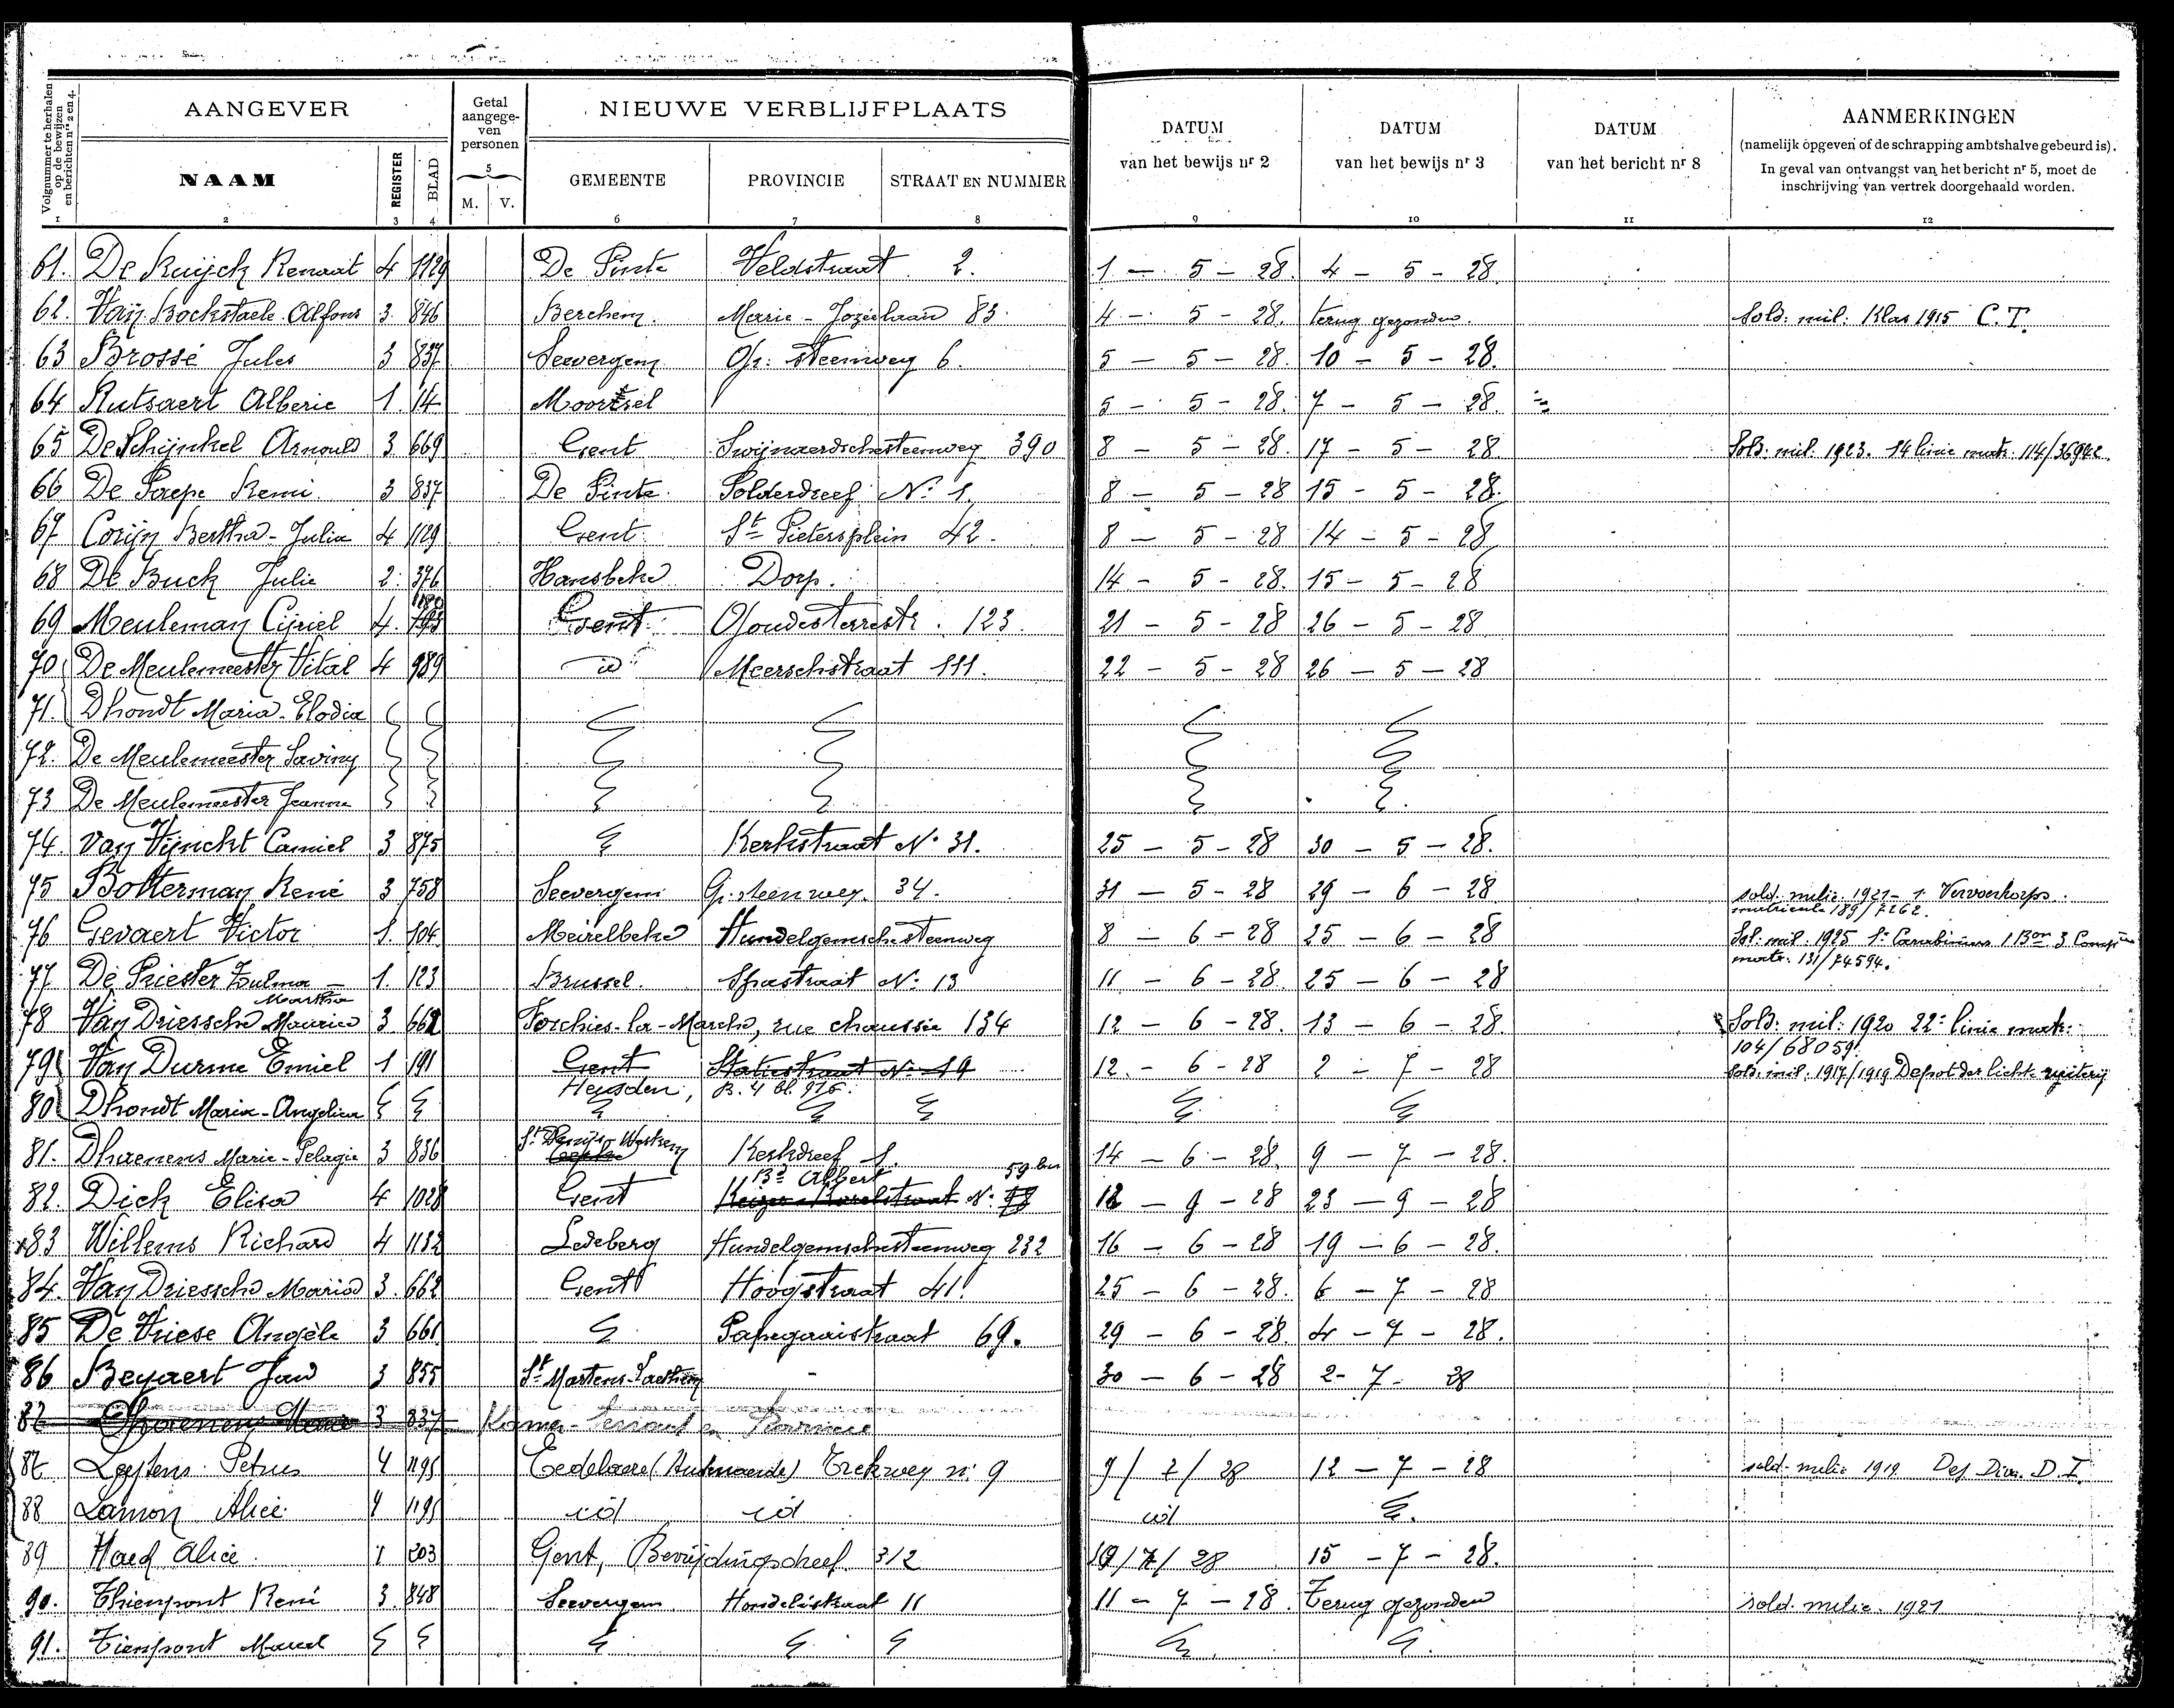 Volgnummer te herhalen op de bewijzen en berichten nrs 2 en 4.
AANGEVER
Getal aangegeven personen
NIEUWE VERBLIJFPLAATS
DATUM van het bewijs nr 2
DATUM van het bewijs nr 3
DATUM van het bericht nr 8
AANMERKINGEN
(namelijk opgeven of de schrapping ambtshalve gebeurd is).
In geval van ontvangst van het bericht nr 5, moet de
inschrijving van vertrek doorgehaald worden.
NAAM REGISTER BLAD M. V. GEMEENTE PROVINCIE STRAAT EN NUMMER
1 2 3 4 5 6 7 8 9 10 11 12
61. De Ruijck Renaat 4 1129 De Pinte Veldstraat 2. 1 - 5 - 28. 4 - 5 - 28
62. Van Bockstaele Alfons 3 846 Berchem. Marie-Joséelaan 83. 4 - 5 - 28. terug gezonden. Sold. mil. Klas 1915 C.T.
63 Brossé Jules 3 837 Seevergem Gr. steenweg 6. 5 - 5 - 28. 10 - 5 - 28.
64 Rutsaert Alberic 1 14 Moortsel 5 - 5 - 28. 7 - 5 - 28.
65 De Schijnkel Arnould 3 669 Gent Swijnaerdschesteenweg 390 8 - 5 - 28. 17 - 5 - 28 Sold. mil. 1923. 14 linie matr. 114/36942.
66 De Paepe Remi. 3 837 De Pinte Polderdreef No 1. 8 - 5 - 28 15 - 5 - 28.
67 Corijn Bertha-Julia 4 1129 Gent St Pietersplein 42. 8 - 5 - 28 14 - 5 - 28
68 De Buck Julie 2 376 Hansbeke Dorp. 14 - 5 - 28. 15 - 5 - 28
69 Meuleman Cijriel 4. Gent 123. 21 - 5 - 28 26 - 5 - 28
70 De Meulemeester Vital 4 989 id Meerschstraat 111. 22 - 5 - 28 26 - 5 - 28
71. Dhondt Maria-Elodia
72. De Meulemeester Saviny
73 De Meulemeester Jeanne
74. Van Vijnckt Camiel 3 875 Kerkstraat No 31. 25 - 5 - 28 30 - 5 - 28.
75 Bolterman René 3 758 Seevergem Gr. steenweg. 34. 31 - 5 - 28 29 - 6 - 28 sold. milie. 1921 - 1. Vervoerkorps.
matricule 189/7262.
76 Gevaert Victor 1. 104 Meirelbeke Hundelgemschesteenweg 8 - 6 - 28 25 - 6 - 28 Sol. mil. 1925 1e Carabiniers 1 Bon 3 Compie
matr. 131/74594.
77 De Priester Zulma 1. 123 Brussel. Spastraat No 13 11 - 6 - 28. 25 - 6 - 28
Martha
78 Van Driessche Maurice 3 662 Forchies-la-Marche, rue chaussée 134 12 - 6 - 28. 13 - 6 - 28. Sold. mil. 1920 22e linie matr.
104/68059.
79 Van Durme Emiel 1 191 Gent Statiestraat No 19 12. - 6 - 28 2 - 7 - 28 Sold. mil. 1917/1919 Depot der lichte ruiterij
Heusden, B. 4 bl. 916.
80 Dhondt Maria-Angelina
81. Dhaenens Marie-Pelagie 3 836 St Denijs-Westrem Kerkdreef 1. 14 - 6 - 28. 9 - 7 - 28.
Bd Albert 59 bis
82. Dick Elisa 4 1028 Gent Keizer Karelstraat No 12 - 9 - 28 23 - 9 - 28
83 Willems Richard 4 1132 Ledeberg Hundelgemschesteenweg 232 16 - 6 - 28 19 - 6 - 28.
84. Van Driessche Maria 3. 662 Gent Hoogstraat 41. 25 - 6 - 28. 6 - 7 - 28
85 De Vriese Angèle 3 661 Papegaaistraat 69. 29 - 6 - 28. 4 - 7 - 28.
86 Beyaert Jan 3 855 St Martens-Laethem - 30 - 6 - 28 2 - 7 - 28
87 Dhaenens 3 837
87 Leytens Petrus 4 1195 Eedelaere (Audenaerde) Trekweg nr 9 9/7/28 12 - 7 - 28 sold. milie 1919 Dep. Div. D.I.
88 Lamon Alice 4 1195 id id id
89 Haed Alice. 1 203 Gent, Bevrijdingsdreef. 312 10/7/28 15 - 7 - 28.
90. Thienpont René 3. 848 Seevergem Hondelistraat 11 11 - 7 - 28. Terug gezonden sold. milie. 1921
91. Tienpont Marcel